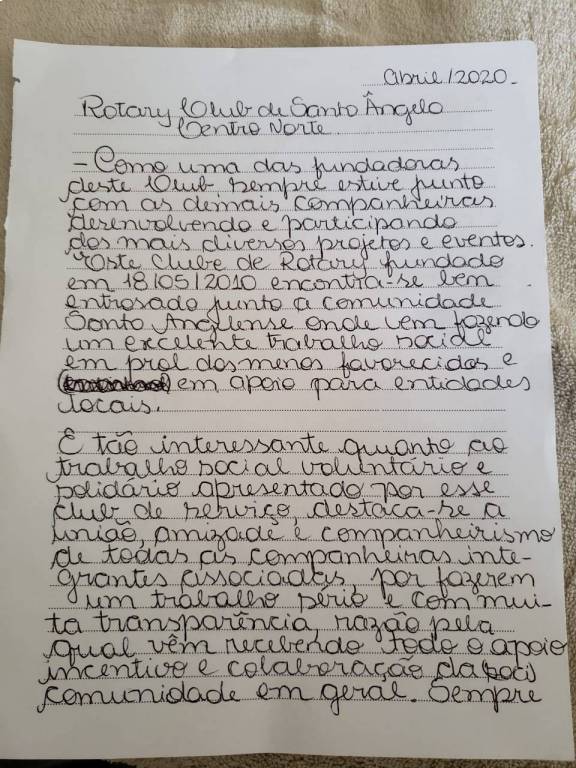 Abril/2020.
Rotary Club de Santo Ângelo
Centro Norte.
- Como uma das fundadoras
deste Club sempre estive junto
com as demais companheiras
desenvolvendo e participando
dos mais diversos projetos e eventos.
Este Clube de Rotary fundado
em 18/05/2010 encontra-se bem
entrosado junto a comunidade
Santo Angelense onde vem fazendo
um excelente trabalho social
em prol dos menos favorecidos e
em apoio para entidades
locais.
É tão interessante quanto ao
trabalho social voluntário e
solidário apresentado por esse
club de serviço, destaca-se a
união, amizade e companheirismo
de todas as companheiras inte-
grantes associadas, por fazerem
um trabalho sério e com mui-
ta transparência, razão pela
qual vêm recebendo todo o apoio
incentivo e colaboração da (soci)
comunidade em geral. Sempre